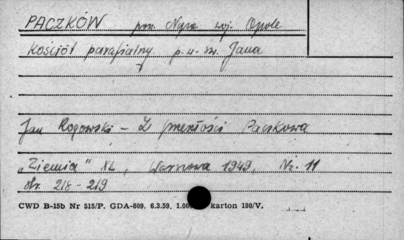 PACZKÓW pow. Nysa woj. Opole
Kościół parafialny p.w. św. Jana
Jan Rogowski – Z Paczkowa
"Ziemia" XL, Warszawa 1949, Nr. 11
str. 218 - 219
CWD B-15b Nr 515/P. GDA-809. 6.3.59. karton 180/V.